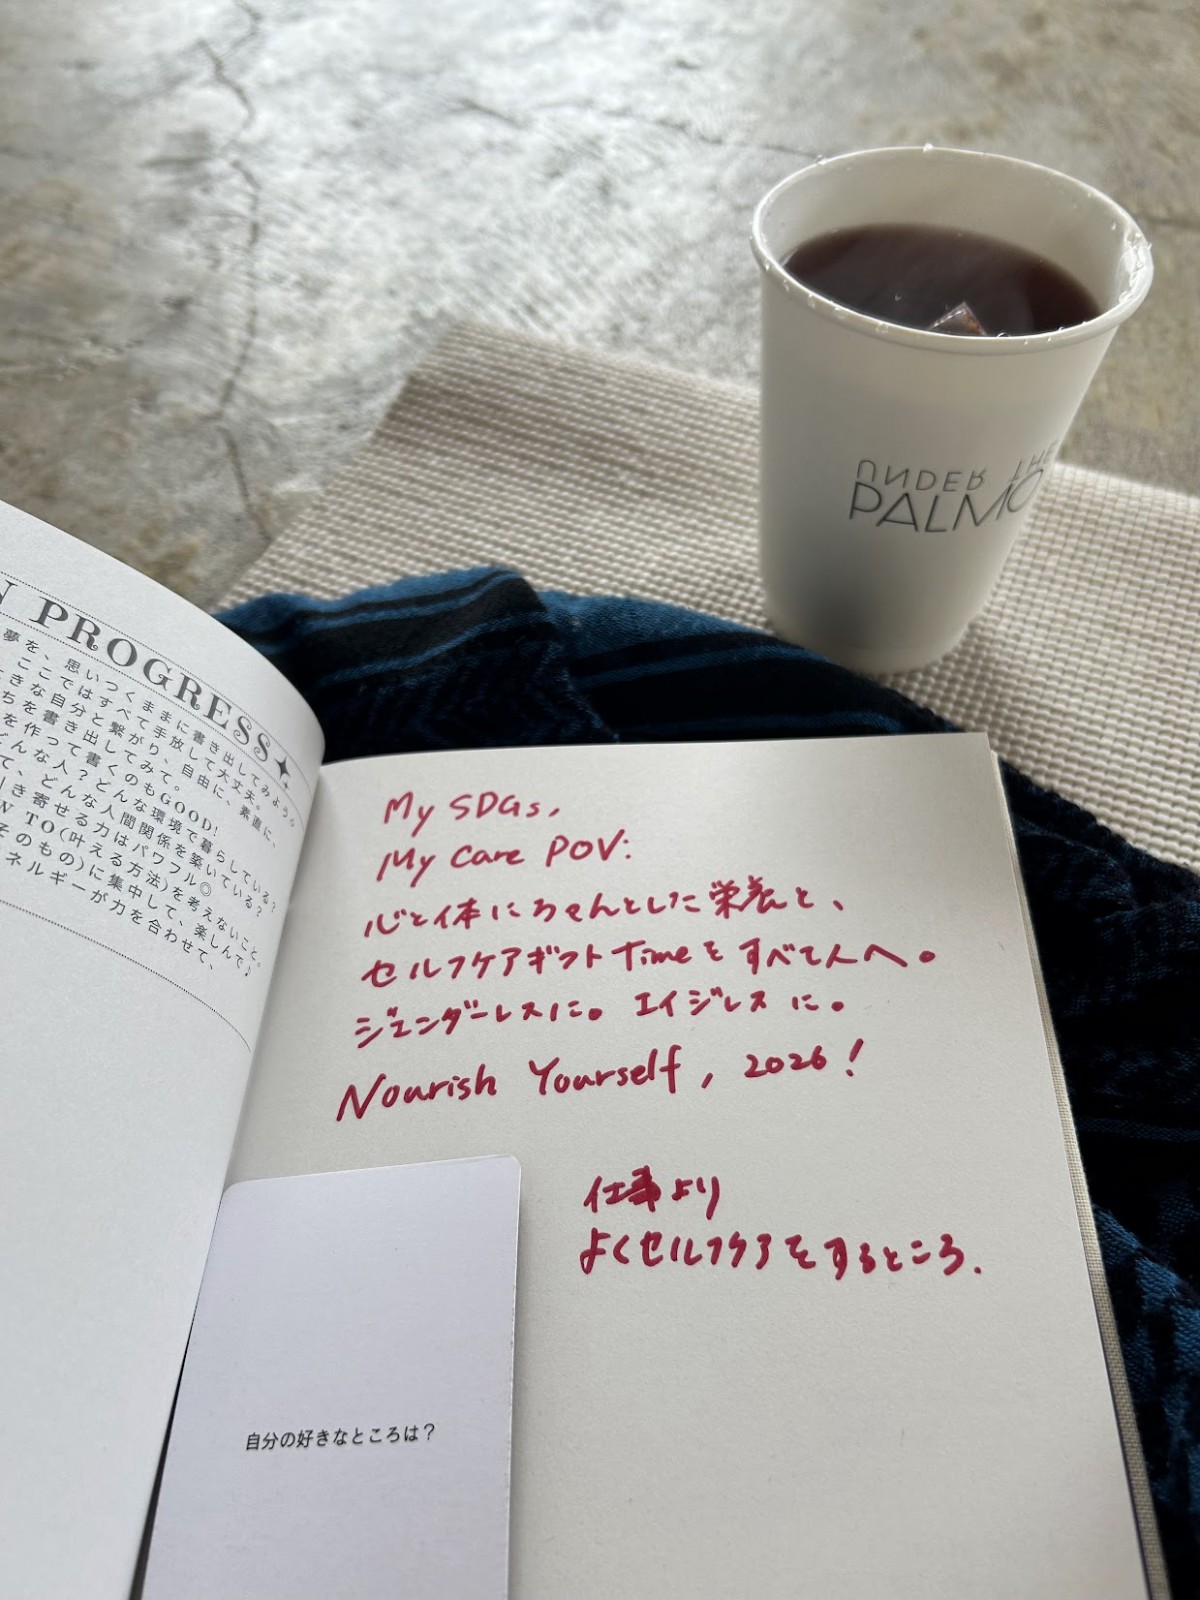 UNDER THE
PALMO
N PROGRESS
夢を、思いつくままに書き出してみよう。
ここではすべて手放して大丈夫。
きな自分と繋がり、自由に、素直に、
ちを書き出してみて。
を作って書くのもGOOD!
どんな人？どんな環境で暮らしている？
て、どんな人間関係を築いている？
き寄せる力はパワフル◎
W TO(叶える方法)を考えないこと。
そのもの)に集中して、楽しんで♪
ネルギーが力を合わせて、
My SDGs,
My Care POV:
心と体にちゃんとした栄養と、
セルフケアギフトTimeをすべて人へ。
ジェンダーレスに。エイジレスに。
Nourish Yourself, 2026!
仕事より
よくセルフケアをするところ.
自分の好きなところは？